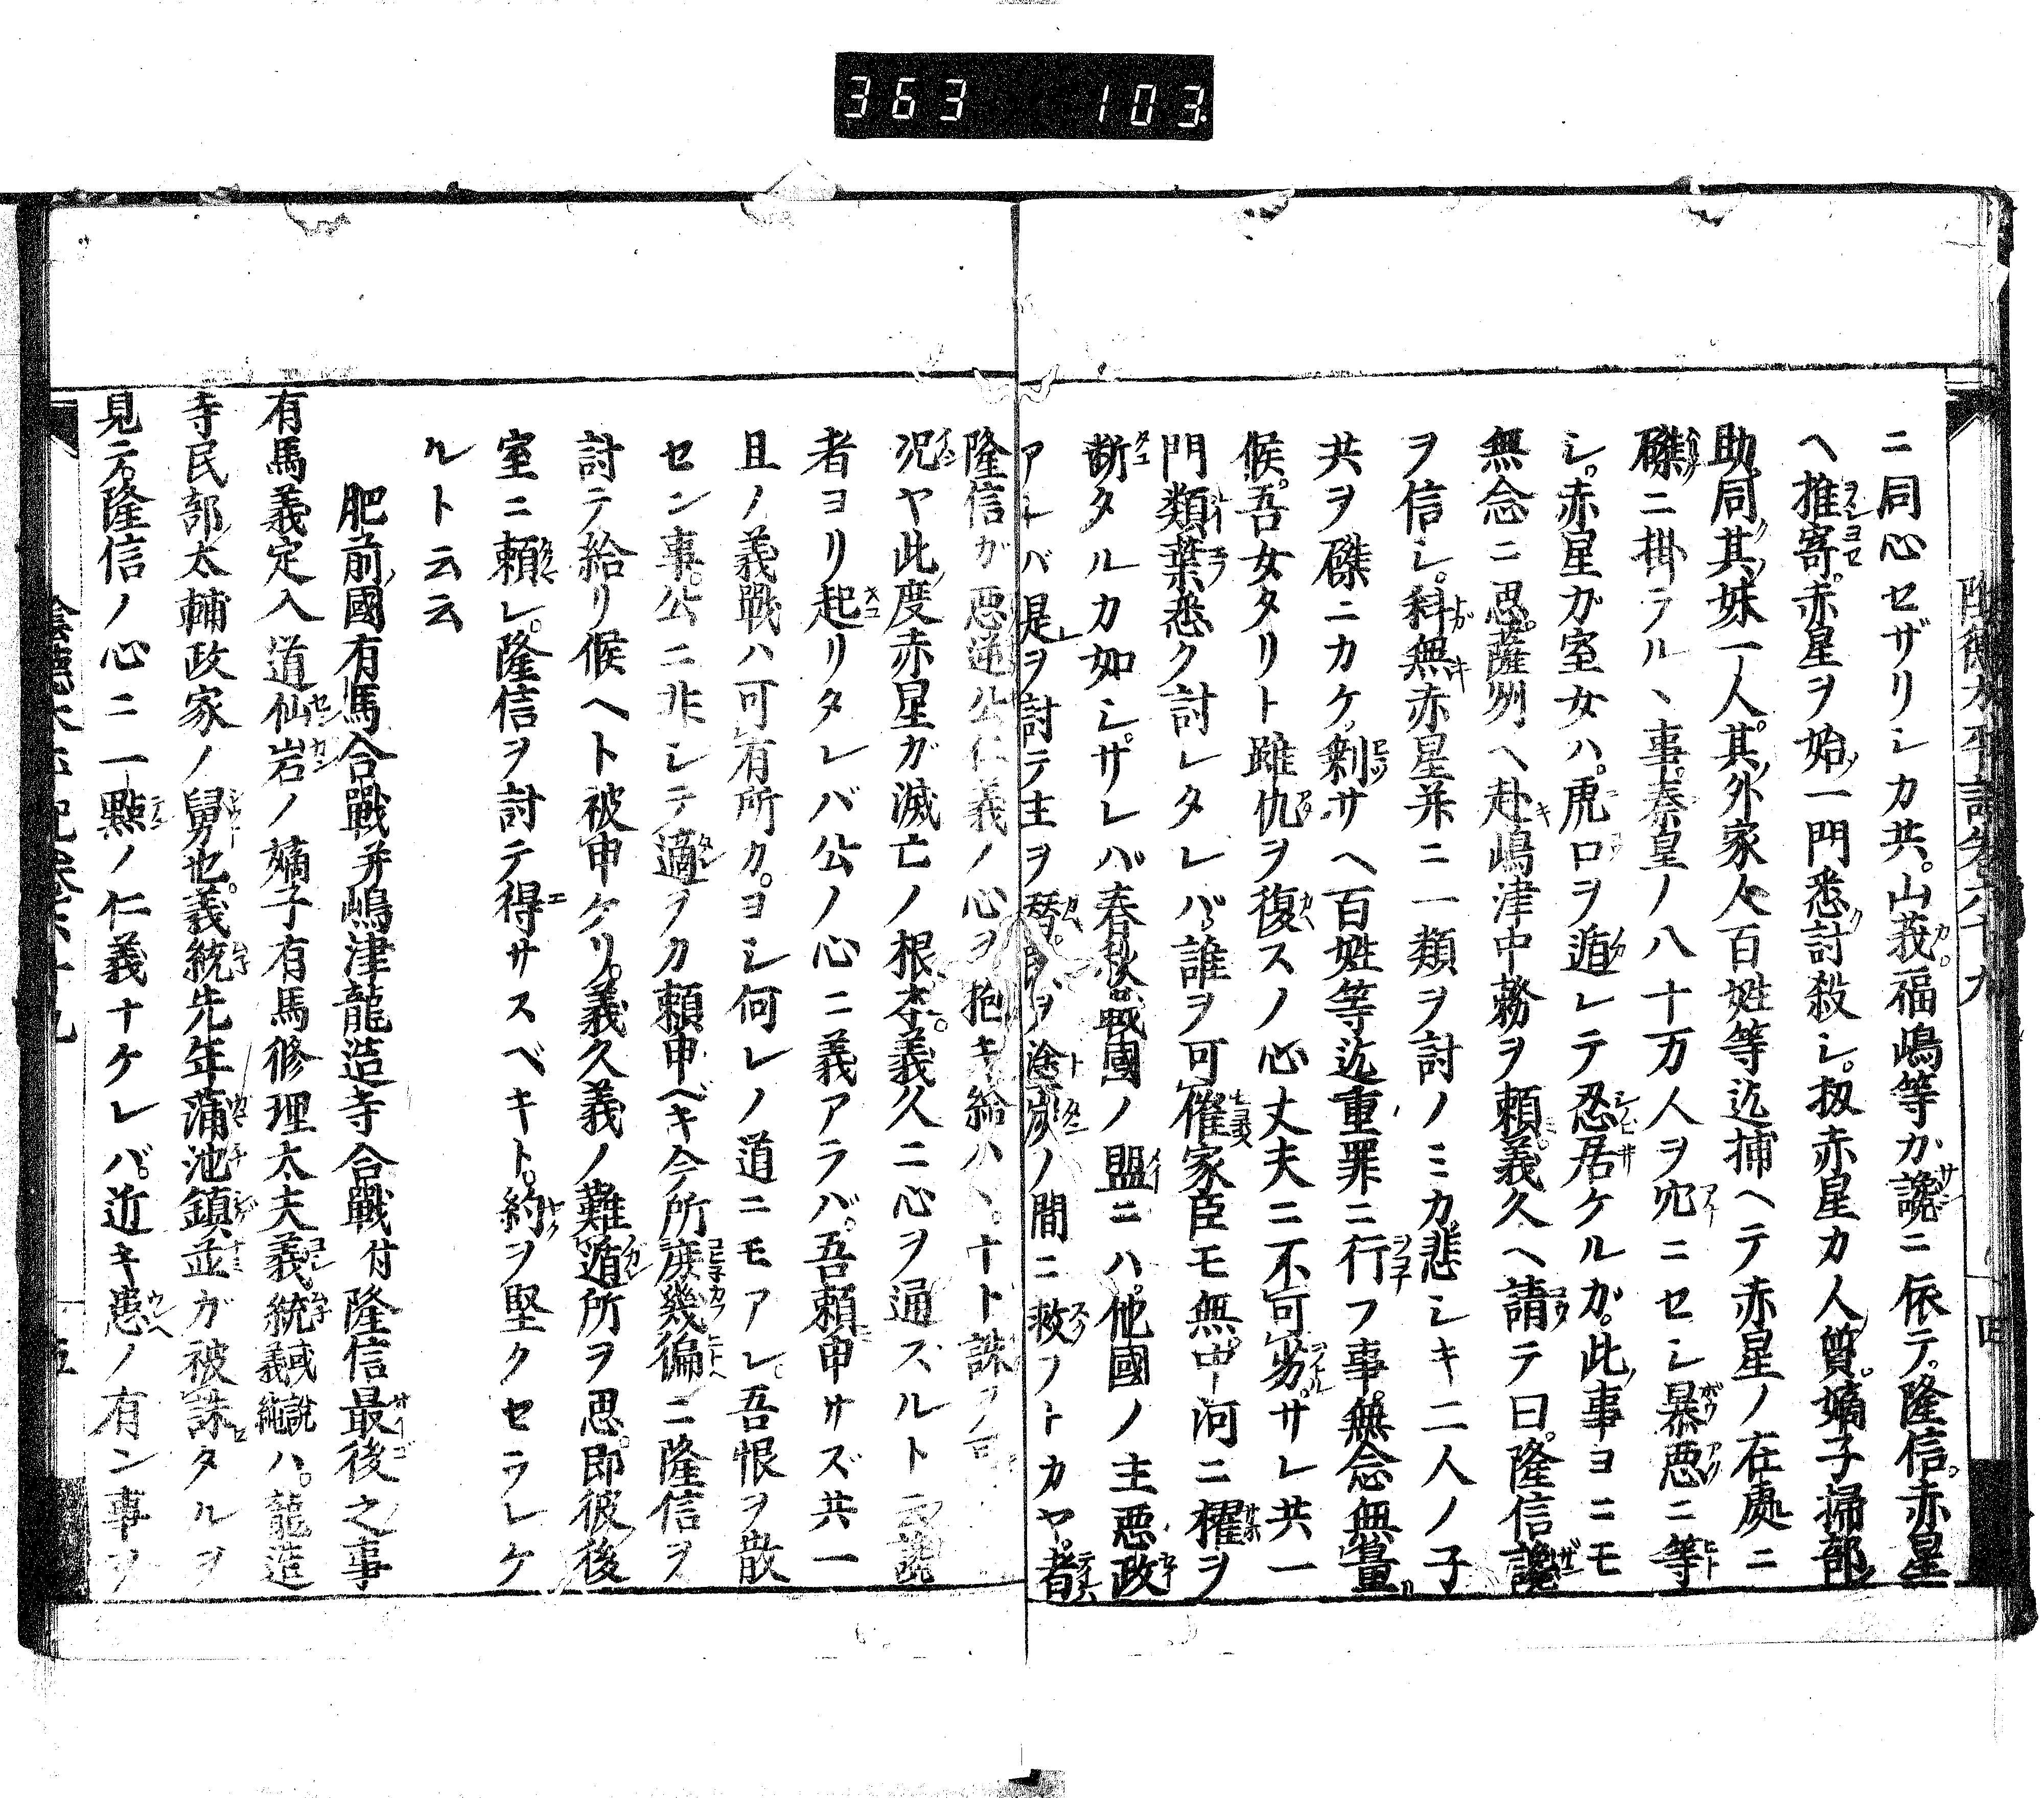 363 103
ニ同心セザリシカ共。山義福嶋等カ讒ニ依テ。隆信。赤星
ヘ推寄。赤星ヲ始一門悉討殺シ。扨赤星カ人質。嫡子掃部
助。同其妹一人。其外家人百姓等迄捕ヘテ赤星ノ在處ニ
磔ニ掛ラル、事。秦皇ノ八十万人ヲ穴ニセシ暴悪ニ等
シ。赤星ガ室女ハ。虎口ヲ遁レテ忍居ケルガ。此事ヨニモ
無念ニ思。薩州ヘ赴嶋津中務ヲ頼。義久ヘ請テ曰。隆信讒
ヲ信シ。科無赤星并ニ一類ヲ討ノミカ悲シキ二人ノ子
共ヲ磔ニカケ。剰サヘ百姓等迄重罪ニ行フ事。無念無量
候。吾女タリト雖仇ヲ復スノ心丈夫ニ不可劣。サレ共一
門類葉悉ク討レタレバ。誰ヲ可催家臣モ無。中河ニ櫂ヲ
断タルカ如シ。サレバ春秋戰國ノ盟ニハ。他國ノ主悪政
アレバ是ヲ討テ主ヲ替。民ヲ塗炭ノ間ニ救フトカヤ。者
隆信ガ悪逆公仁義ノ心ヲ抱キ給ハヽ。ナド誅
况ヤ此度赤星ガ滅亡ノ根本。義久ニ心ヲ通スルト云説
者ヨリ起リタレバ公ノ心ニ義アラバ。吾頼申サズ共一
且ノ義戰ハ可有所カ。ヨシ何レノ道ニモアレ。吾恨ヲ散
セン事。公ニ非シテ適ヲカ頼申ベキ今所庶幾偏ニ隆信ヲ
討テ給リ候ヘト被申ケリ。義久義ノ難遁所ヲ思。即彼後
室ニ頼レ。隆信ヲ討テ得サスベキト。約ヲ堅クセラレケ
ルト云云
肥前國有馬合戰并嶋津龍造寺合戰付隆信最後之事
有馬義定入道仙岩ノ嫡子有馬修理太夫義統或説義純ハ。龍造
寺民部太輔政家ノ舅也。義統先年蒲池鎮並ガ被誅タルヲ
見テ。隆信ノ心ニ一點ノ仁義ナケレバ。近キ患ノ有ン事ヲ